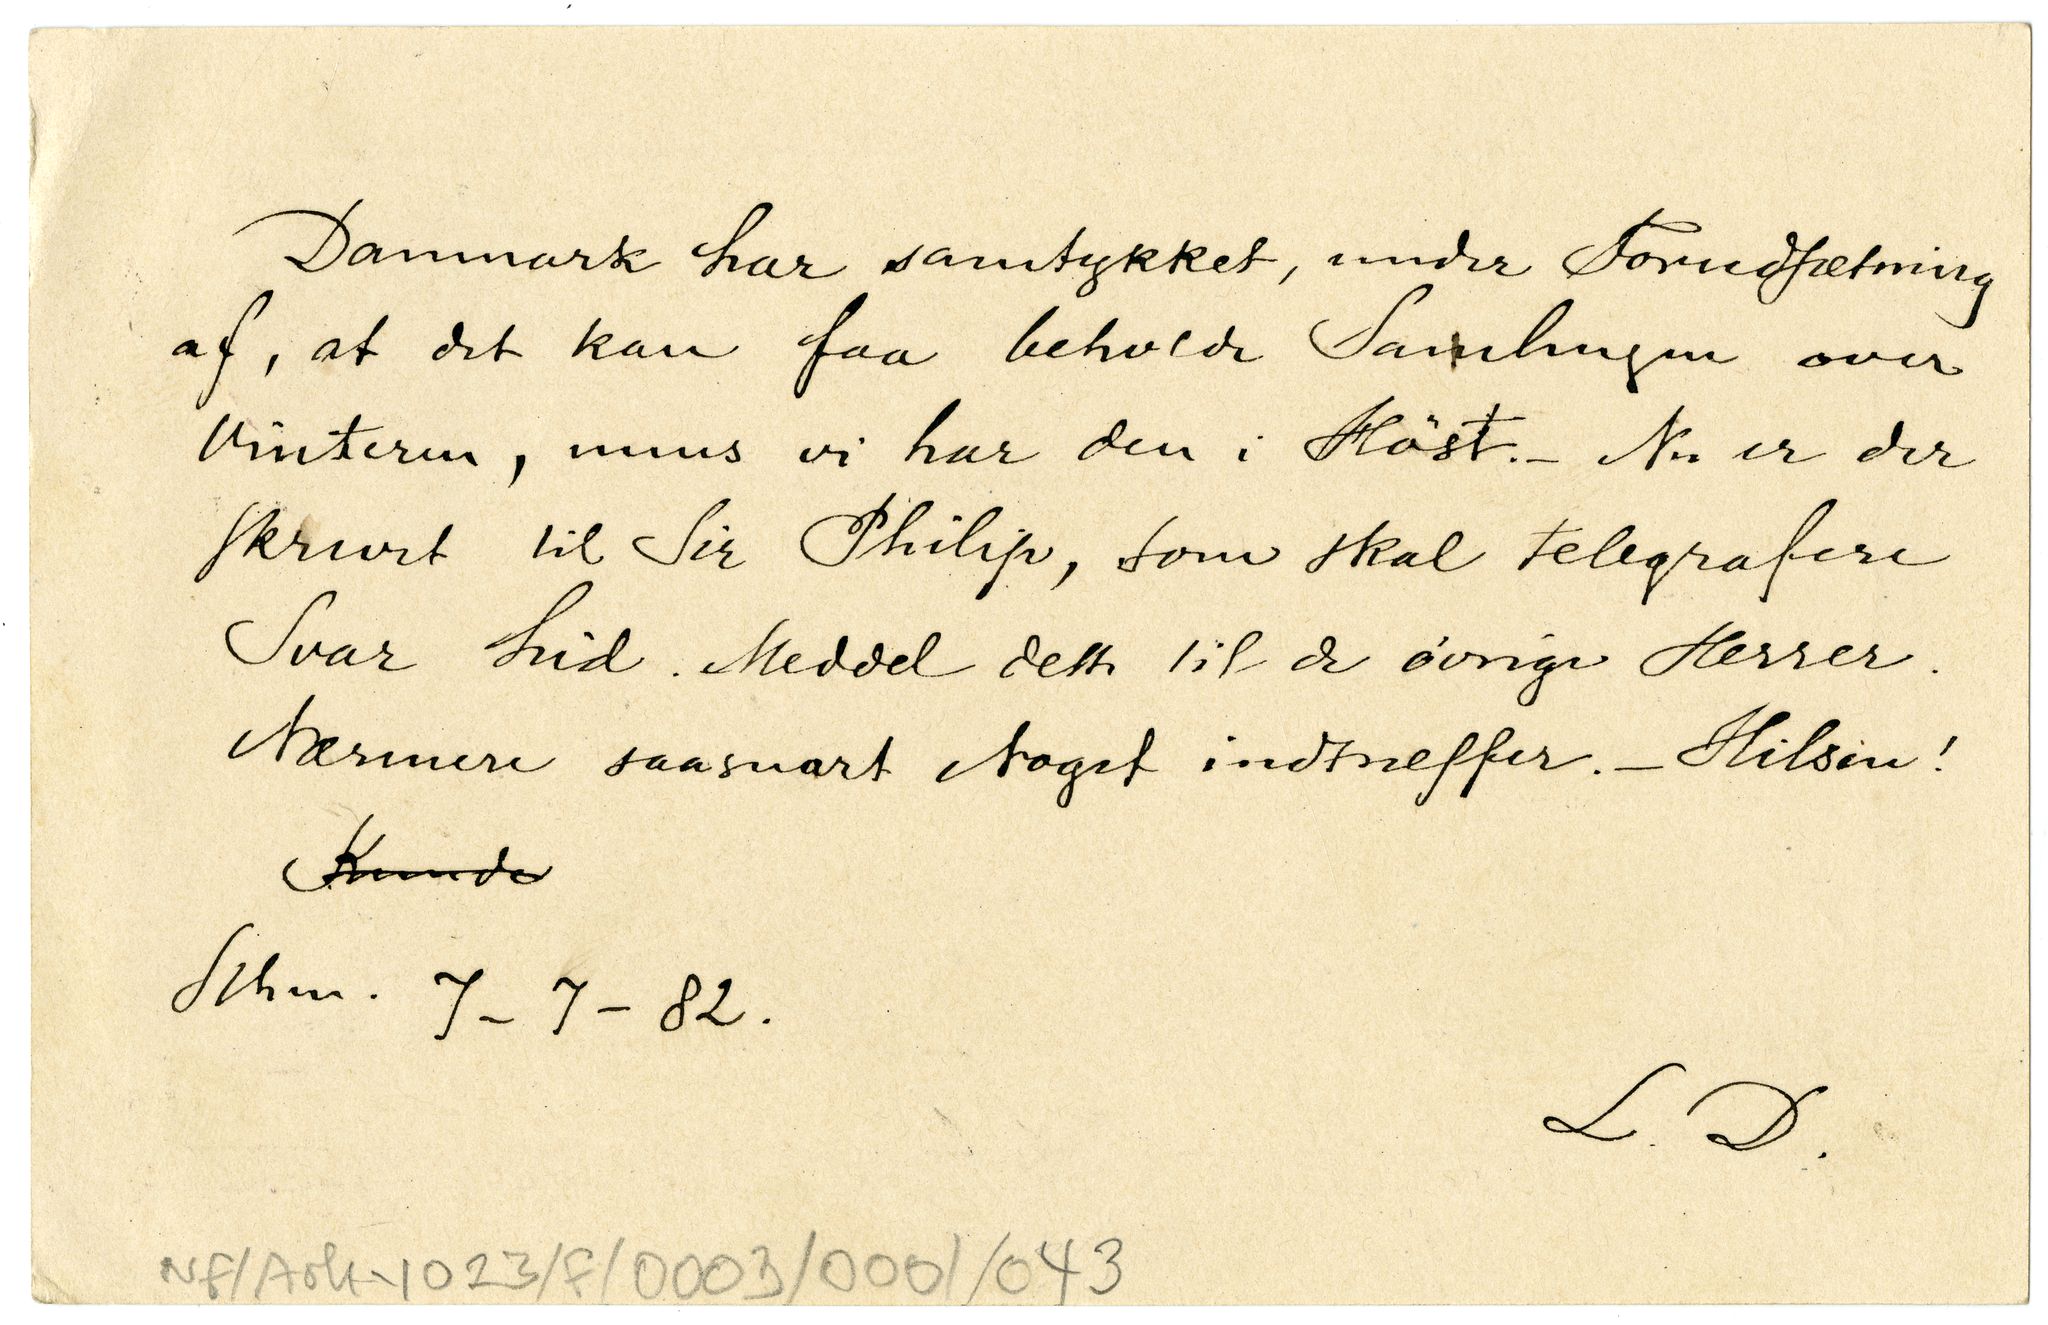 Danmark har samtykket, under Forudsætning
af, at det kan faa beholde Samlingen over
Vinteren, mens vi har den i Höst. – Nu er der
skrevet til Sir Philip, som skal telegrafere
Svar hid. Meddel dette til de övrige Herrer.
Nærmere saasnart Noget indtræffer. – Hilsen!
Sthm. 7 – 7 – 82.
L. D.
NF/Ark-1023/F/0003/0001/043